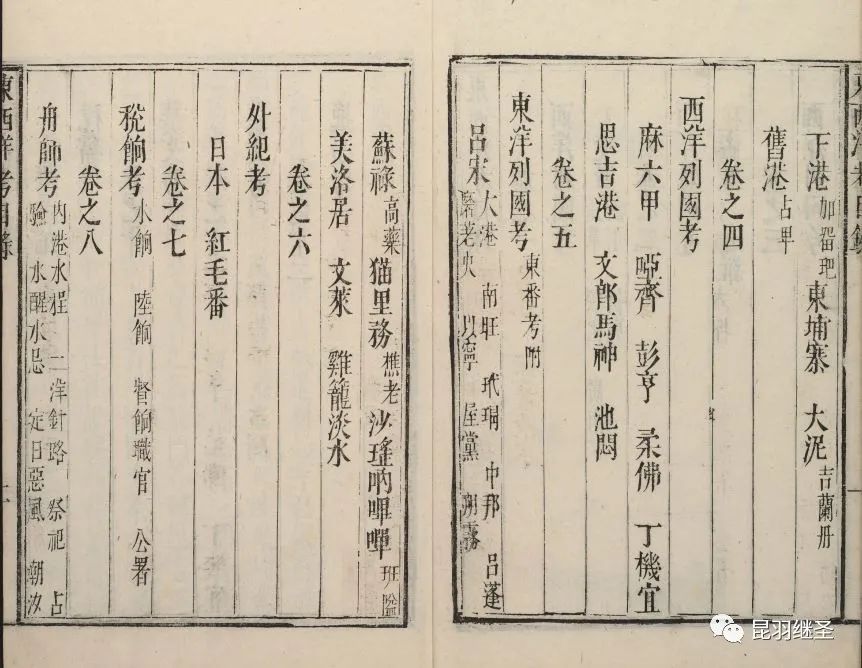 下港加留𠯈 東埔寨 大泥吉蘭丹
舊港占卑
卷之四
西洋列國考
麻六甲 啞齊 彭亨 柔佛 丁機宜
思吉港 文郎馬神 池悶
卷之五
東洋列國考東番考附
呂宋大港 南旺 玳瑁 中邦 呂蓬
磨老央 以寧 屋黨 朔霧
東西洋考目錄
蘇祿高藥 猫里務樵老 沙瑤吶嗶嘽班隘
美洛居 文萊 雞籠淡水
卷之六
外紀考
日本 紅毛番
卷之七
稅餉考水餉 陸餉 督餉職官 公署
卷之八
舟師考內港水程 二洋針路 祭祀 占
驗 水醒水忌 定日惡風 潮汐
東西洋考目錄
昆羽继圣